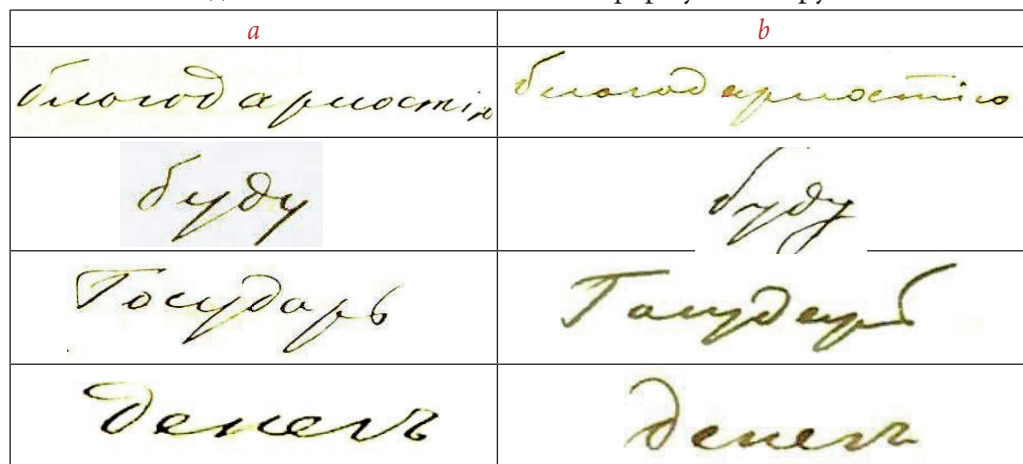 a b
благодарностію благодарностію
буду буду
Государь Государь
денегъ денегъ